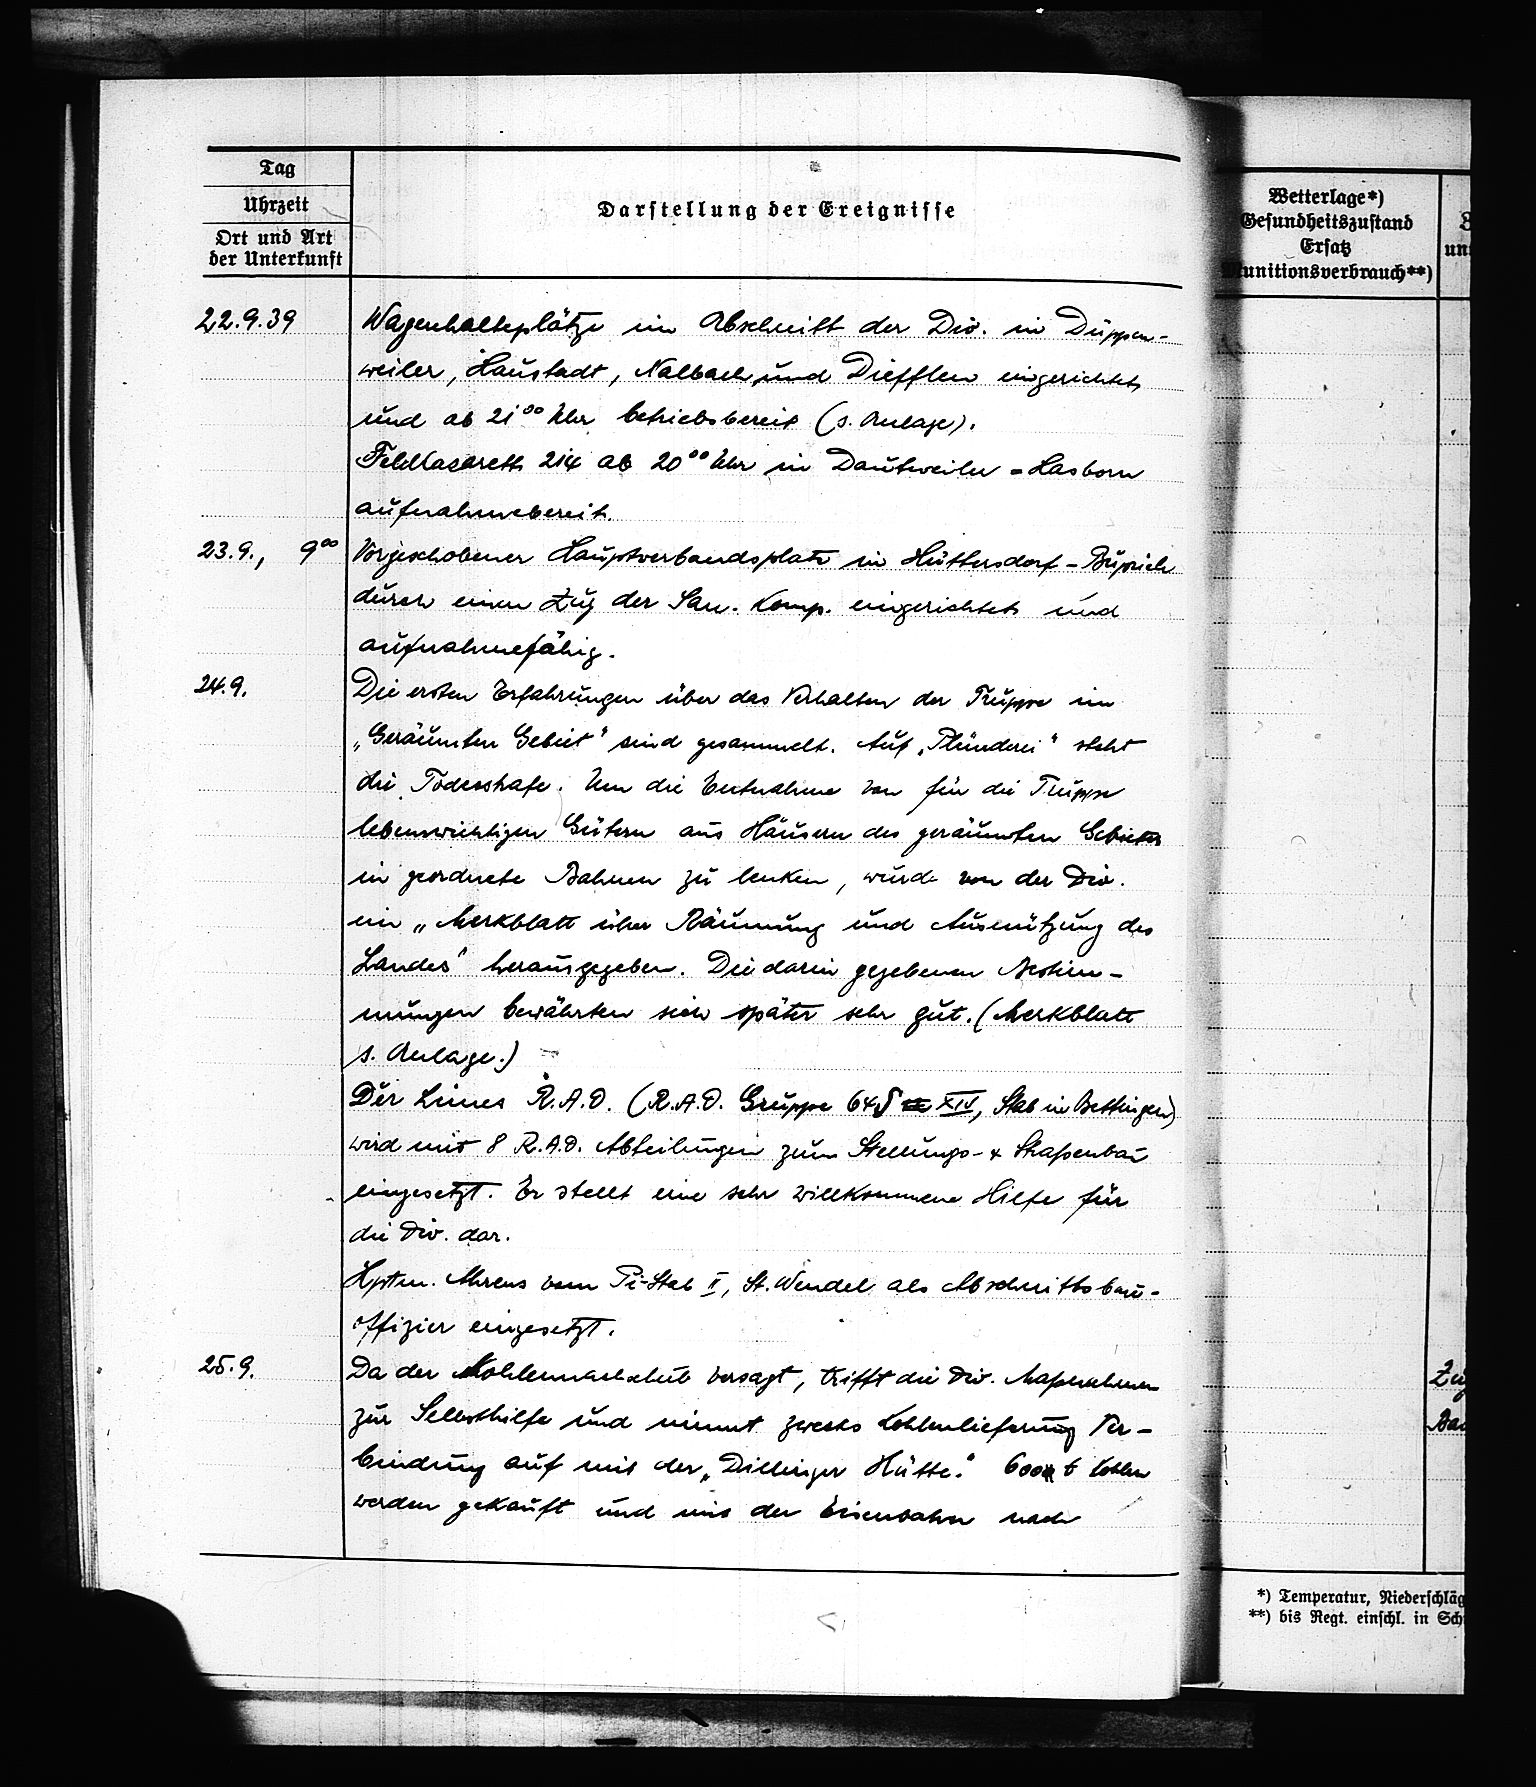 Tag
Uhrzeit
Ort und Art
der Unterkunft
Darstellung der Ereignisse
22.9.39
Wagenhalteplätze im Abschnitt der Div. in Düppen-
weiler, Haustadt, Nalbach und Diefflen eingerichtet
und ab 21⁰⁰ Uhr betriebsbereit (s. Anlage).
Feldlazarett 214 ab 20⁰⁰ Uhr in Dautweiler = Hasborn
aufnahmebereit.
23.9., 9⁰⁰
Vorgeschobener Hauptverbandsplatz in Hüttersdorf - Buprich
durch einen Zug der San. Komp. eingerichtet und
aufnahmefähig.
24.9.
Die ersten Erfahrungen über das Verhalten der Truppe im
„Geräumten Gebiet" sind gesammelt. Auf „Plünderei" steht
die Todesstrafe. Um die Entnahme von für die Truppe
lebenswichtigen Gütern aus Häusern des geräumten Gebietes
in geordnete Bahnen zu lenken, wurde von der Div.
ein „Merkblatt über Räumung und Ausnützung des
Landes" herausgegeben. Die darin gegebenen Bestim-
mungen bewährten sich später sehr gut. (Merkblatt
s. Anlage.)
Der Limes R.A.D. (R.A.D. Gruppe 645 XIV, Stab in Bettingen)
wird mit 8 R.A.D. Abteilungen zum Stellungs- & Straßenbau
eingesetzt. Er stellt eine sehr willkommene Hilfe für
die Div. dar.
Hptm. Ahrens vom Pi-Stab II, St. Wendel als Abschnittsbau-
offizier eingesetzt.
25.9.
Da der Kohlennachschub versagt, trifft die Div. Maßnahmen
zur Selbsthilfe und nimmt zwecks Kohlenlieferung Ver-
bindung auf mit der „Dillinger Hütte." 600 t Kohlen
werden gekauft und mit der Eisenbahn nach
Wetterlage*)
Gesundheitszustand
Ersatz
Munitionsverbrauch**)
*) Temperatur, Niederschläg
**) bis Regt. einschl. in Sch